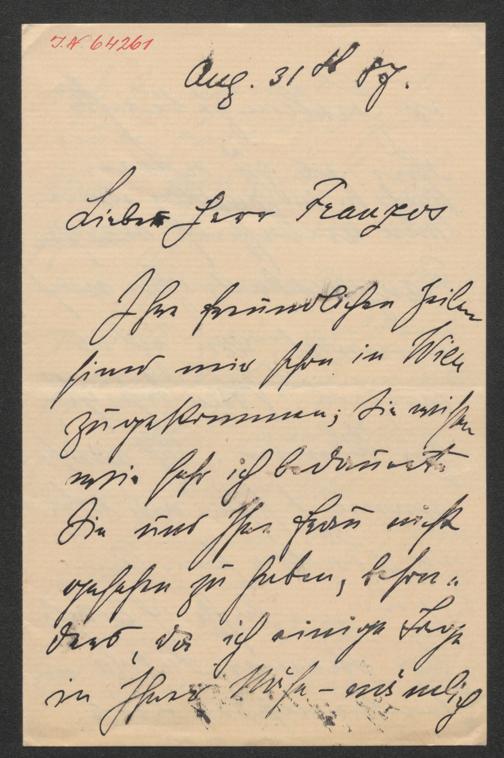 J.N 64261
Aug. 31st 87.
Lieber Herr Franzos
Ihre freundlichen Zeilen
sind mir schon in Wien
zugekommen; Sie wissen
wie sehr ich bedauerte
Sie und Ihre Frau nicht
gesehen zu haben, beson-
ders, da ich einige Tage
in Ihrer Nähe – nämlich